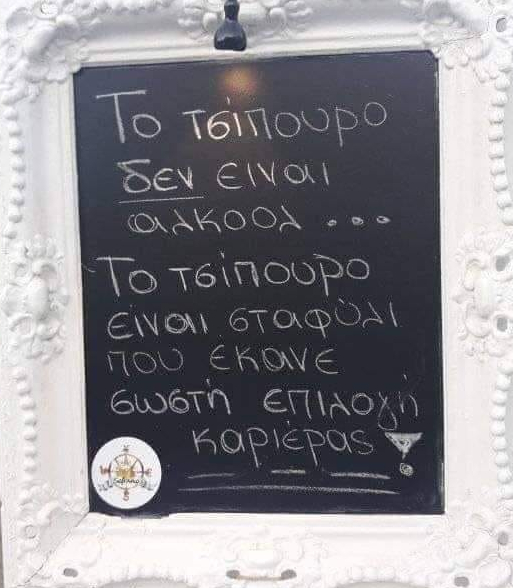 Το τσίπουρο
δεν ειναι
αλκοολ ...
Το τσίπουρο
είναι σταφύλι
που έκανε
σωστή επιλογή
καριέρας!